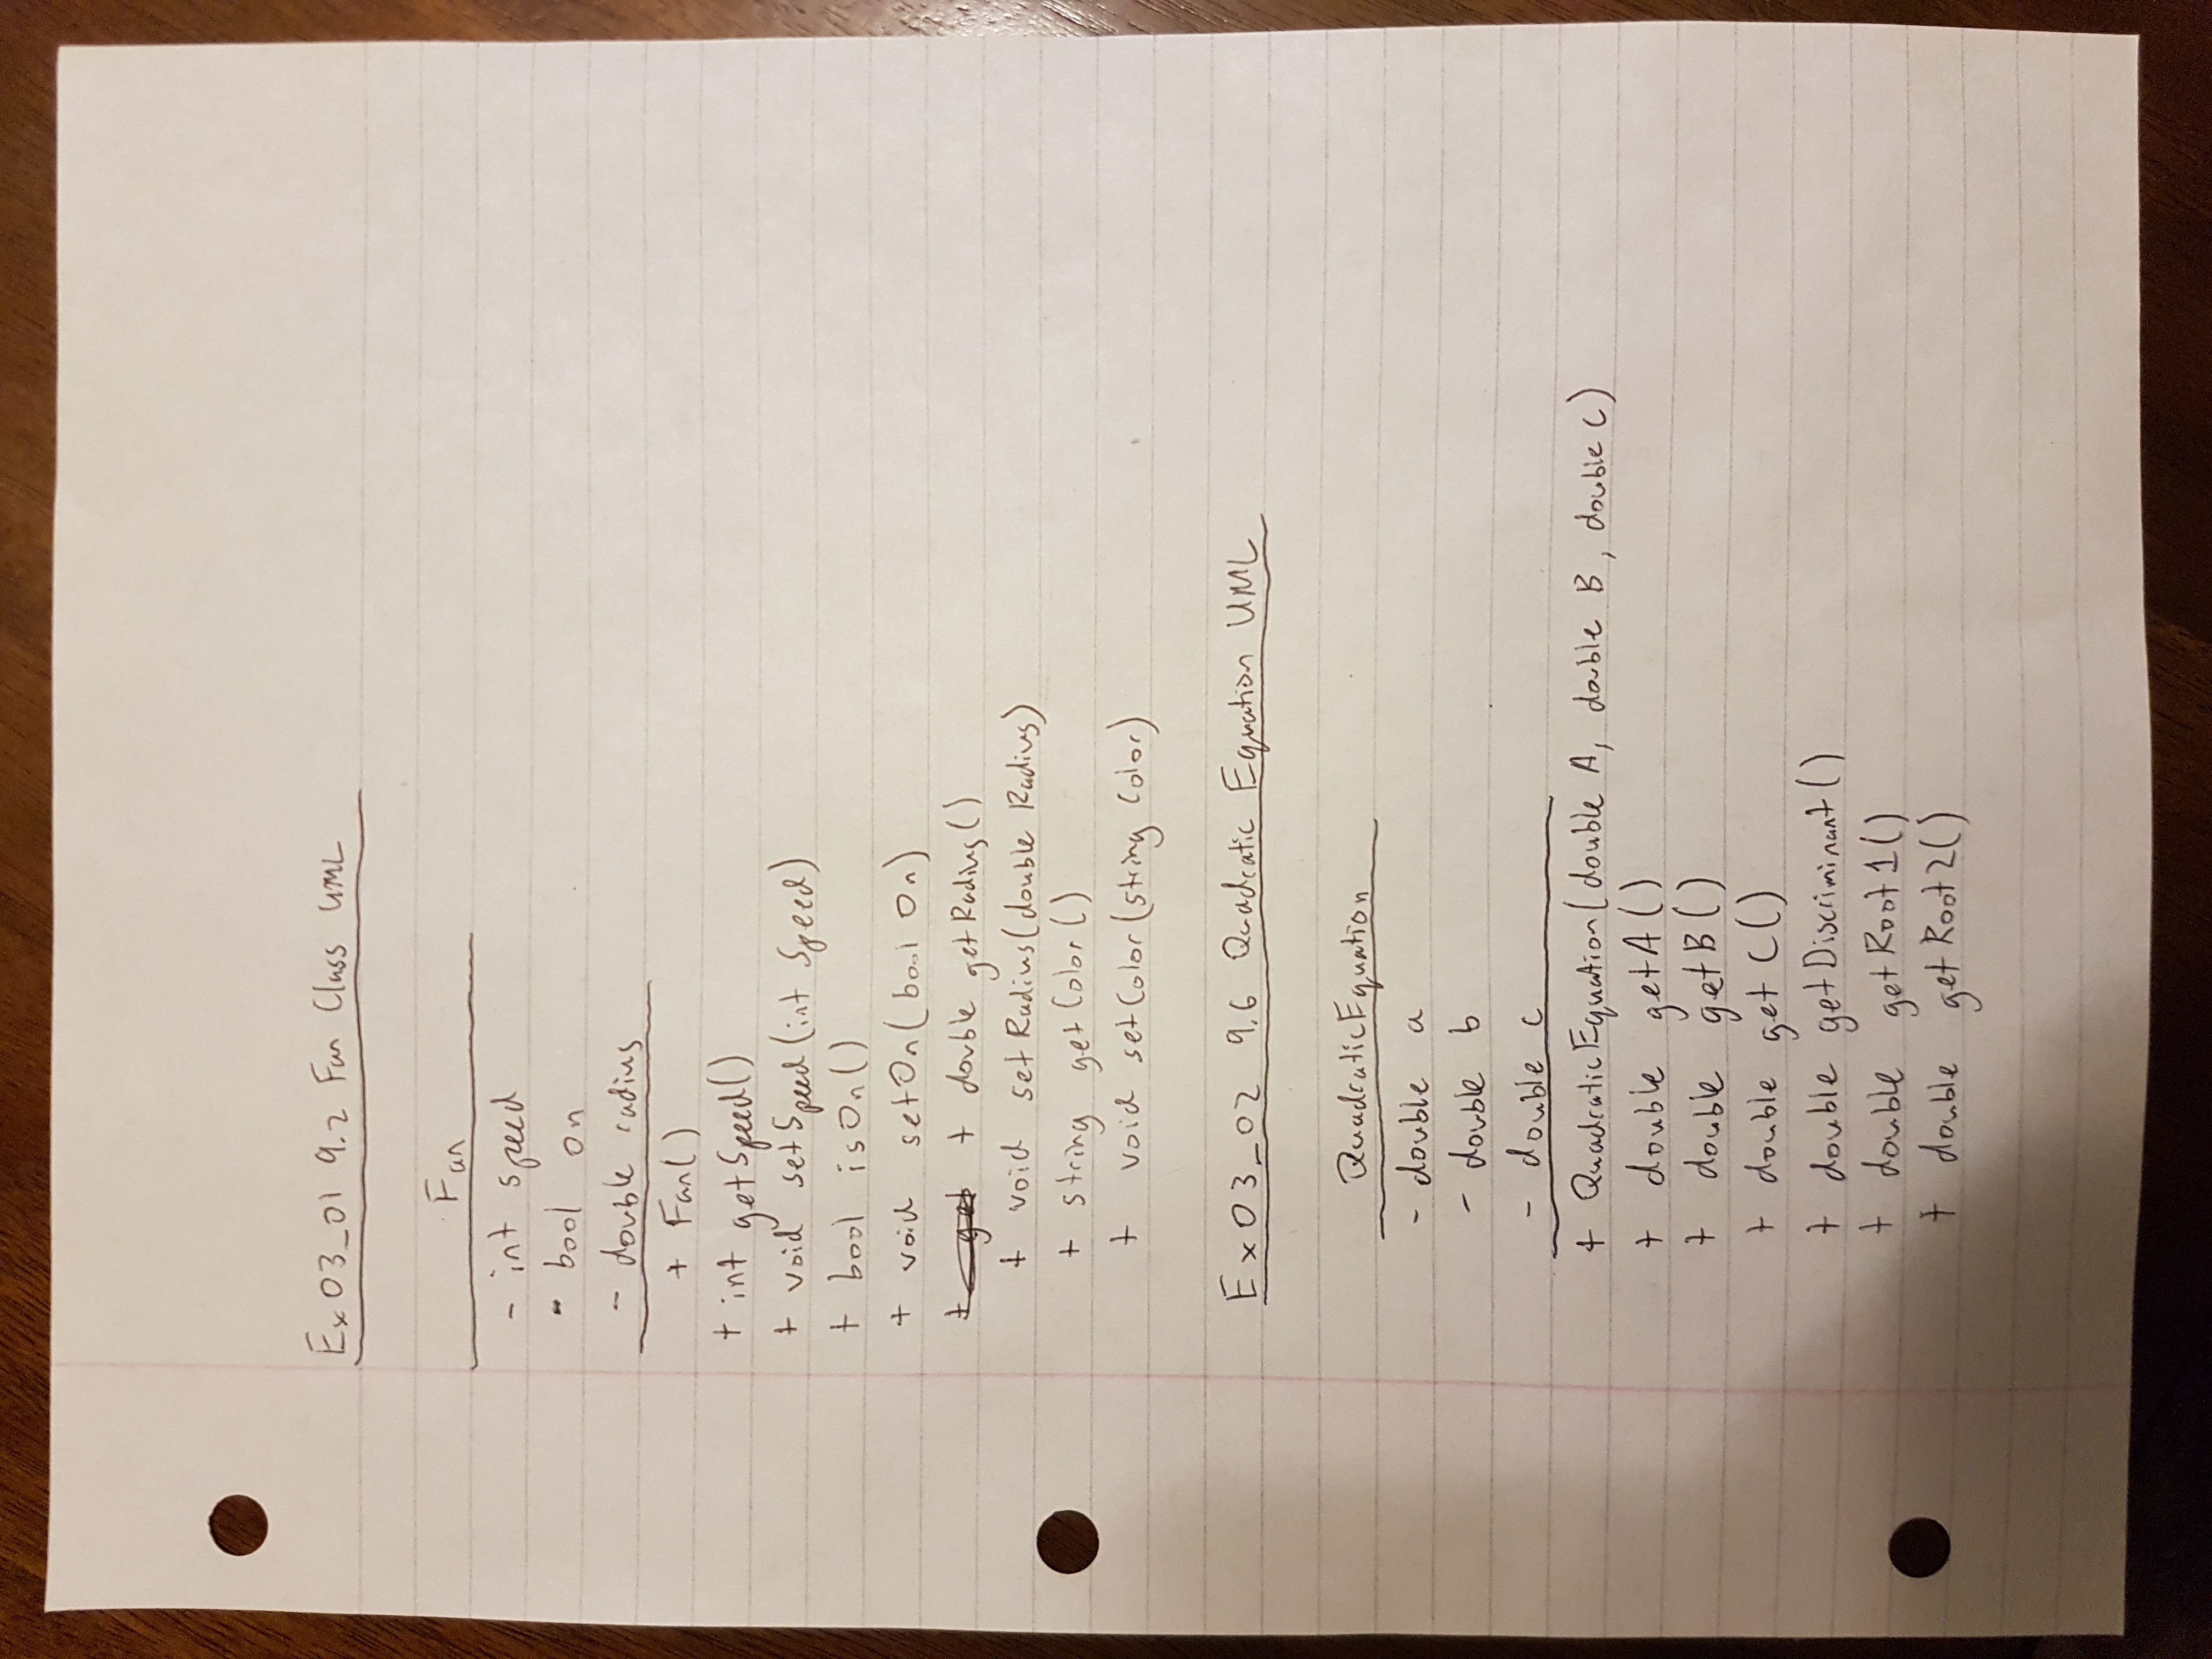 Ex03_01 9.2 Fan Class UML
Fan
- int speed
- bool on
- double radius
+ Fan()
+ int getSpeed()
+ void setSpeed(int Speed)
+ bool isOn()
+ void setOn(bool On)
+ get + double getRadius()
+ void setRadius(double Radius)
+ string getColor()
+ void setColor(string Color)
Ex03_02 9.6 Quadratic Equation UML
QuadraticEquation
- double a
- double b
- double c
+ QuadraticEquation(double A, double B, double C)
+ double getA()
+ double getB()
+ double getC()
+ double getDiscriminant()
+ double getRoot1()
+ double getRoot2()